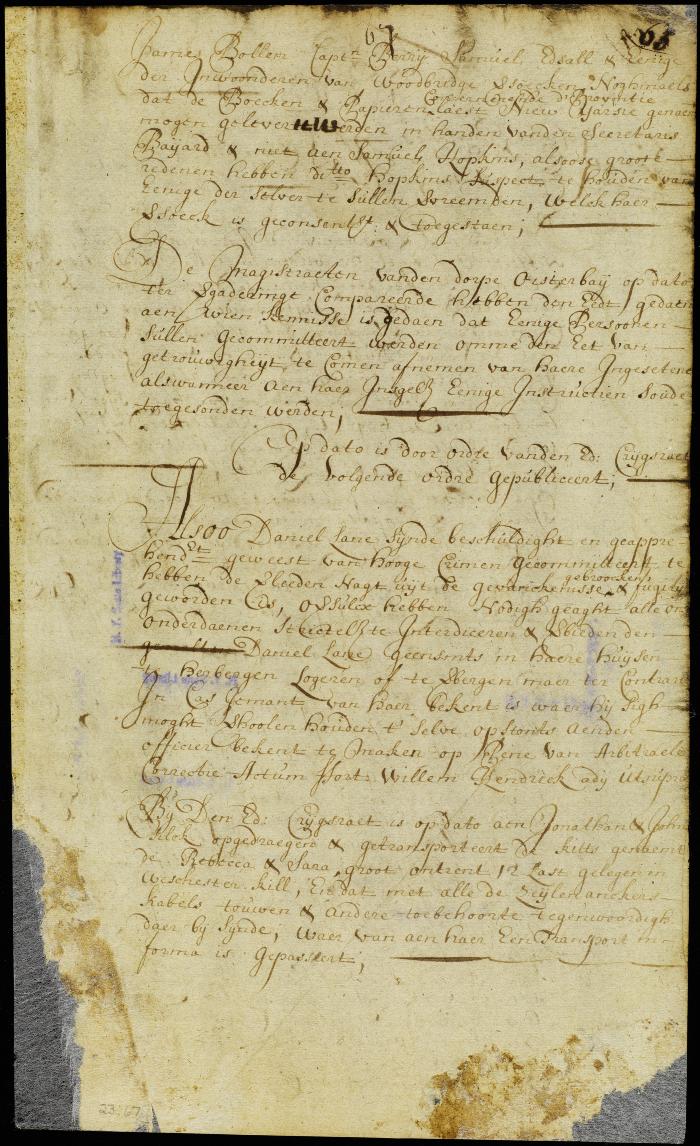 67
65
James Bollen Capt:n Berry Samuel Edsall & eenige
der Inwoonderen van Woodbridge Noghmaels
Concerneerende d' Provintie
dat de Boecken & Papieren laest Nieuw Yarsie genaemt
mogen gelevert werden in handen vanden Secretaris
Bayard & niet aen Samuel Hopkins, alsoose groote
redenen hebben ditto Hopkins suspect te houden van
Eenige der selver te sullen vreemden, welck haer
versoeck is geconsent:t & toegestaen;
De Magistraeten vanden dorpe Oisterbay op dato
ter vergaderinge Compareerende hebben den Eedt gedaen
aen wien kennisse is gedaen dat Eenige Persoonen
sullen gecommitteert werden omme den Eet van
getrouwigheyt te Comen afnemen van haere Ingesetene
alswanneer aen haer Insgel: Eenige Instructien soude
toegesonden werden;
Op dato is door ordre vanden Ed: Crijgsraet
de volgende ordre gepubliceert;
Alsoo Daniel Lane sijnde beschuldight en geappre-
hend:t geweest van hooge Crimen gecommitteert te
hebben de verleeden Nagt uijt de gevanckenisse gebroocken & fugityf
geworden is, hebben Nodigh geaght alle onse
onderdaenen te Interdiceren & verbieden den
Daniel Lane geensints in haere huijsen
te herbergen Logeren of te verbergen maer ter Contrarie
In Cas Jemant van haer bekent is waer hij sigh
moght Schoolen houden t' selve opstonts aenden
officier bekent te maken op Pene van Arbitraele
Correctie Actum ffort Willem Hendrick ady Utsupra
By Den Ed: Crijgsraet is op dato aen Jonathan & John
Selck opgedraegen & getransporteert de kitts genaemt
de Rebecca & Sara, groot ontrent 12 Last gelegen in
Weschester kill, En dat met alle de zeylen anckers
kabels touwen & andere toebehoorte tegenwoordigh
daer by sijnde; waer van aen haer Een Transport in
forma is gepasseert;
23:67